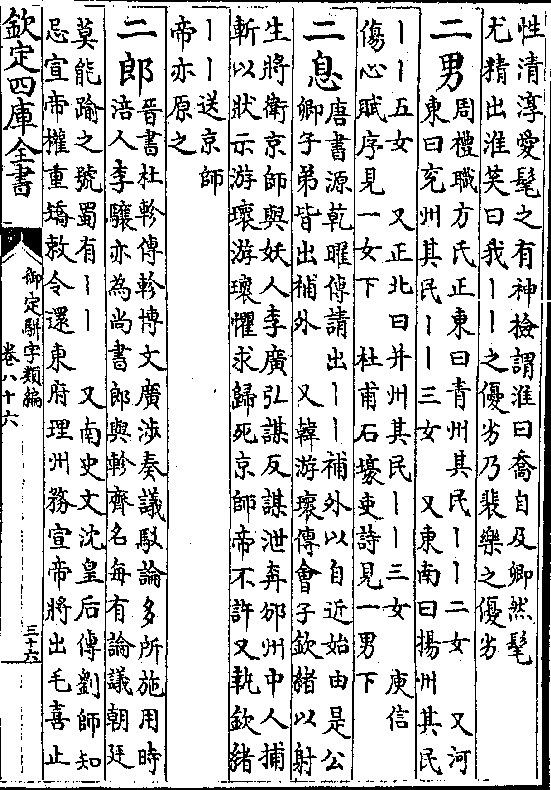 性清淳愛髦之有神檢謂淮曰喬自及卿然髦
尤精出淮笑曰我丨丨之優劣乃裴樂之優劣
二男
周禮職方氏正東曰青州其民丨丨二女 又河
東曰兖州其民丨丨三女 又東南曰揚州其民
丨丨五女 又正北曰并州其民丨丨三女 庾信
傷心賦序見一女下 杜甫石壕吏詩見一男下
二息
唐書源乾曜傳請出丨丨補外以自近始由是公
卿子弟皆出補外 又韓游瓌傳會子欽緒以射
生將衛京師與妖人李廣弘謀反謀泄奔邠州中人捕
斬以狀示游瓌游瓌懼求歸死京師帝不許又執欽緒
丨丨送京師
帝亦原之
二郎
晉書杜軫傳軫博文廣涉奏議駁論多所施用時
涪人李驤亦為尚書郎與軫齊名每有論議朝廷
莫能踰之號蜀有丨丨 又南史文沈皇后傳劉師知
忌宣帝權重矯敕令還東府理州務宣帝將出毛喜止
欽定四庫全書
御定駢字類編
卷八十六
三十六